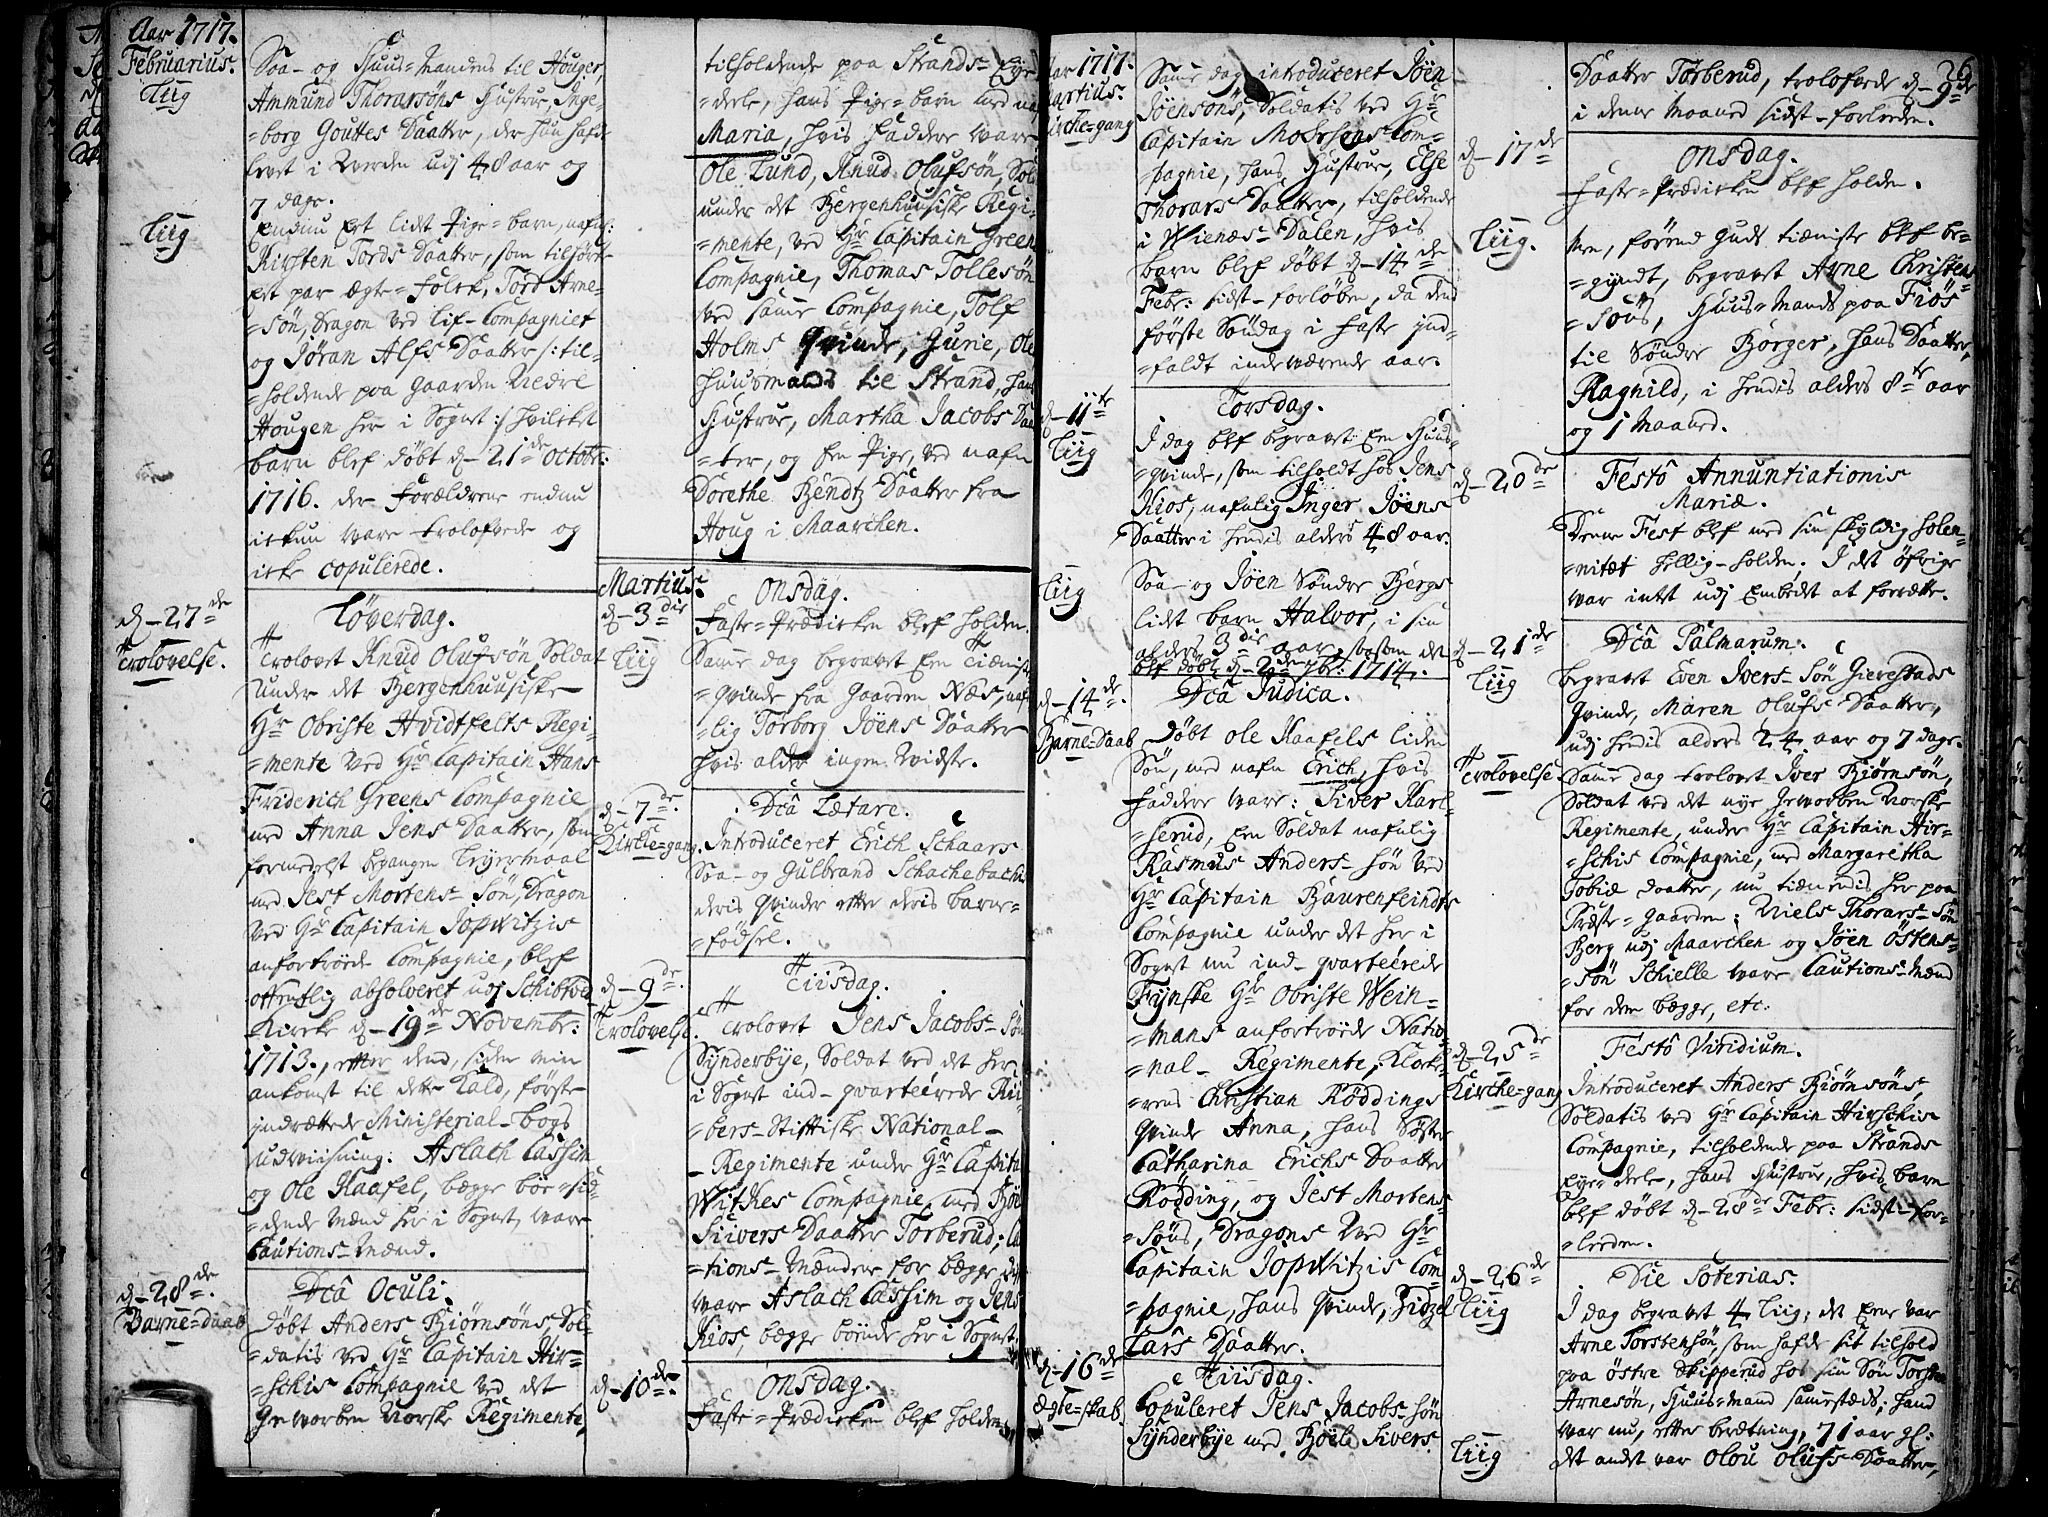 Aar 1717.
Februarius.
Liig
Saa- og Huus-Mandens til Houger,
Ammund Thorarsøns Hustrue, Inge-
=borg Gouttes Daatter, der hun hafde
levet i Verden udj 48 aar og
7 dage.
Liig
Endnu Eet lidet Pige=barn, nafnl:
Kirsten Tords Daatter, som tilhørte
Eet par ægte=Folck, Tord Arne-
=søn, Dragon ved Lif-Compagniet
og Jøran Alfs Daatter /: til-
=holdende paa Gaarden Nedre
Hougen her i Sognet :/ hvilcket
barn blef døbt d- 21de Octobr:
1716. der Forældrene endnu
ickun vare trolofvede og
icke copulerede.
d- 27de
Trolovelse.
Løverdag.
Trolovet Knud Olufsøn, Soldat
under det Bergenhuusiske
Hr Obriste Hvidtfelts Regi-
=mente ved Hr Capitain Hans
Friderich Greens Compagnie
med Anna Jens Daatter, som
formedelst begangen Leyermaal
med Jest Mortens-Søn, Dragon
ved Hr Capitain Jopwitzis
anfortroede Compagnie, blef
offentlig absolveret udj Schibtved
Kircke d- 19de Novembr:
1713., efter dend, siden min
ankomst til dette Kald, første
indrættede Ministerial-bogs
udviisning. Aslach Cassim
og Ole Kaafel, begge boe=sid-
=dende Mænd her i Sognet, vare
Cautions-Mænd.
d- 28de.
Barne=Daab
Dca Oculi.
Døbt Anders Biørnsøns, Sol-
=datis ved Hr Capitain Hir-
=schis Compagnie ved det
Geworben Norske Regimente,
tilholdende paa Strands-Eye
=deele, hans Pige=barn med nafn
Maria, hvis Faddere ware
Ole Lund, Knud Olufsøn, Sol
under det Bergenhuusiske Regi-
=mente, ved Hr Capitain Green
Compagnie, Thomas Tollesøn
ved samme Compagnie, Tolf
Holms Qvinde, Gurie, Ole
Huusmands til Strand, hans
Hustrue, Martha Jacobs Daa
=ter, og En Pige, ved nafn
Dorethe Bendtz Daatter fra
Houg i Maarchen.
Martius.
d- 3die
Liig
Onsdag.
Faste=Prædicken blef holden.
Samme dag begravet Een Tieniste
=qvinde fra Gaarden Næs, naf
=lig Torborg Joens Daatter
hvis alder ingen vidste.
d- 7de.
Kirche=gang.
Dca Lætare.
Introduceret Erich Schaars
Saa- og Gulbrand Schachebachis
deris Qvinder efter deris barne=
=fødsel.
d- 9de.
Trolovelse.
Tiisdag.
Trolovet Jens Jacobs-Søn
Synderbye, Soldat ved det her
i Sognet ind-qvarteerede Ri-
=bers-Stifftiske National-
-Regimente under Hr Capita
Withes Compagnie, med Boel
Siivers Daatter Torberud; Ca
=tions-Mændene for begge
ware Aslach Cassim og Jens
Kios, begge boende her i Sognet.
d- 10de.
Onsdag.
Faste=Prædicken blef holden
Aar 1717.
Martius.
Kirche=gang
Samme dag introduceret Joen
Joensøns, Soldatis ved Hr
Capitain Com-
=pagnie, hans Hustrue, Else
Thorars Daatter, tilholdende
i Wienæs-Dalen, hvis
barn blef døbt d- 14de
Febr: sidst-forløben, da dend
første Søndag i Faste ind-
=faldt indeværende aar.
d- 11te
Liig
Torsdag.
I dag blef begravet Een Huus-
=qvinde, som tilholdt hos Jens
Kios, nafnlig Inger Joens
Daatter i hendis alders 48 aar.
Liig
Saa- og Joen Søndre Bergs
lidet barn Halvor, i sin
alders 3die aar, saasom det
blef døbt d- 2den 7br: 1714.
d- 14de.
Barne=Daab
Dca Judica.
Døbt Ole Kaafels liden
Søn, med nafn Erich, hvis
Faddere ware: Siver Karl-
=serud, Een Soldat nafnlig
Rasmus Anders-Søn ved
Hr Capitain Baurenfeindts
Compagnie under det her i
Sognet nu ind-qvarteerede
Fynske Hr Obriste Wein-
=mans anfortroede Natio
=nal-Regimente, Klocke-
=rens Christian Røddings
Qvinde Anna, hans Søster
Catharina Erichs Daatter
Rødding, og Jest Mortens-
=Søns, Dragons ved Hr
Capitain Jopwitzis Com-
=pagnie, hans Qvinde, Zidzel
Lars Daatter.
d- 16de
Ægte=skab.
Tiisdag.
Copuleret Jens Jacobs-Søn
Synderbye med Boele Sivers
26
Daatter Torberud, trolofvede d- 9de
i denne Maaned sidst-forleden.
d- 17de
Onsdag.
Faste=Prædicken blef holden.
Liig.
Men, førend Guds tieniste blef be-
=gyndt, begravet Arne Christens
=Søns, Huus-Mands paa Fiøs-
til Søndre Borger, hans Daatter,
Ragnild, i hendis alders 8te aar
og 1 Maaned.
d- 20de
Festo Annuntiationis
Mariæ.
Denne Fest blef med sin skyldig solen-
=nitæt hellig-holden; I det øfrige
war intet udj Embedet at forrætte.
d- 21de
Liig
Dca Palmarum.
begravet Even Ivers-Søn Gierestads
Qvinde, Maren Olufs Daatter,
udj hendis alders 24 aar og 7 dage.
Trolovelse
Samme dag trolovet Iver Biørnsøn,
Soldat ved det nye Geworben Norske
Regimente, under Hr Capitain Hir-
=schis Compagnie, med Margaretha
Tobiæ Daatter, nu tienendis her paa
Præste=gaarden; Niels Thorars-Søn
Berg udj Maarchen og Joen Østens-
=søn Schielle ware Cautions-Mænd
for dem begge, etc.
d- 25de
Kirche=gang
Festo Viridium.
Introduceret Anders Biørnsøns,
Soldatis ved Hr Capitain Hirschis
Compagnie, tilholdende paa Strands
Eye=deele, hans Hustrue, hvis barn
blef døbt d- 28de Febr: sidst-for-
=leeden.
d- 26de
Liig
Die Soterias.
I dag begravet 4 Liig; det Eene var
Arne Torstensøn, som hafde sit tilhold
paa Østre Skipperud hos sin Søn Torsten
Arnesøn, Huus-mand sammestæds; hand
war nu, efter beretning, 71 aar gl:
Liig
det andet var Olou Olufs Daatter,